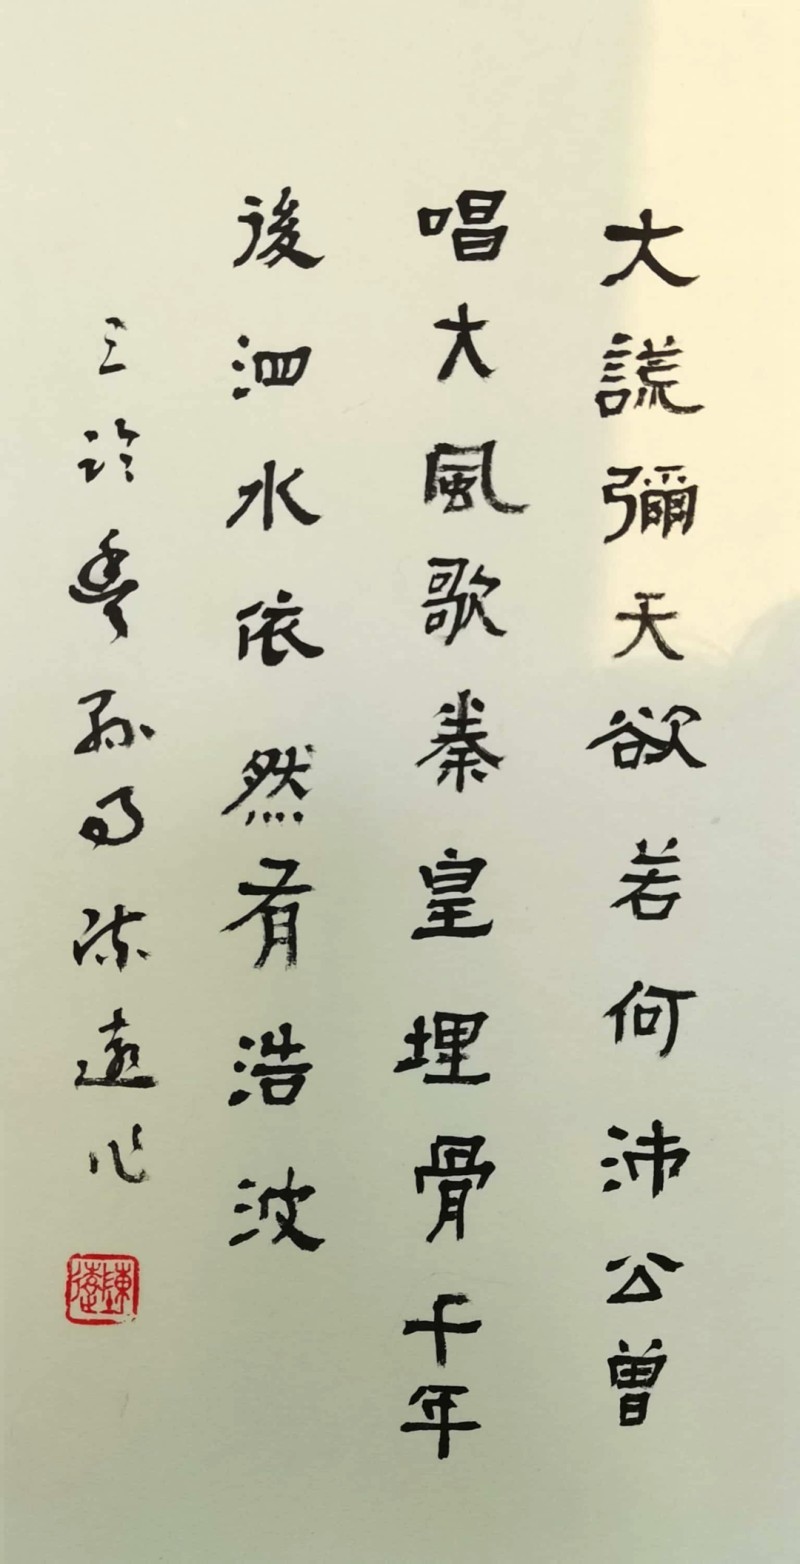 大謊彌天欲若何沛公曾
唱大風歌秦皇埋骨千年
後泗水依然有浩波
三
孫
遠作
陳遠